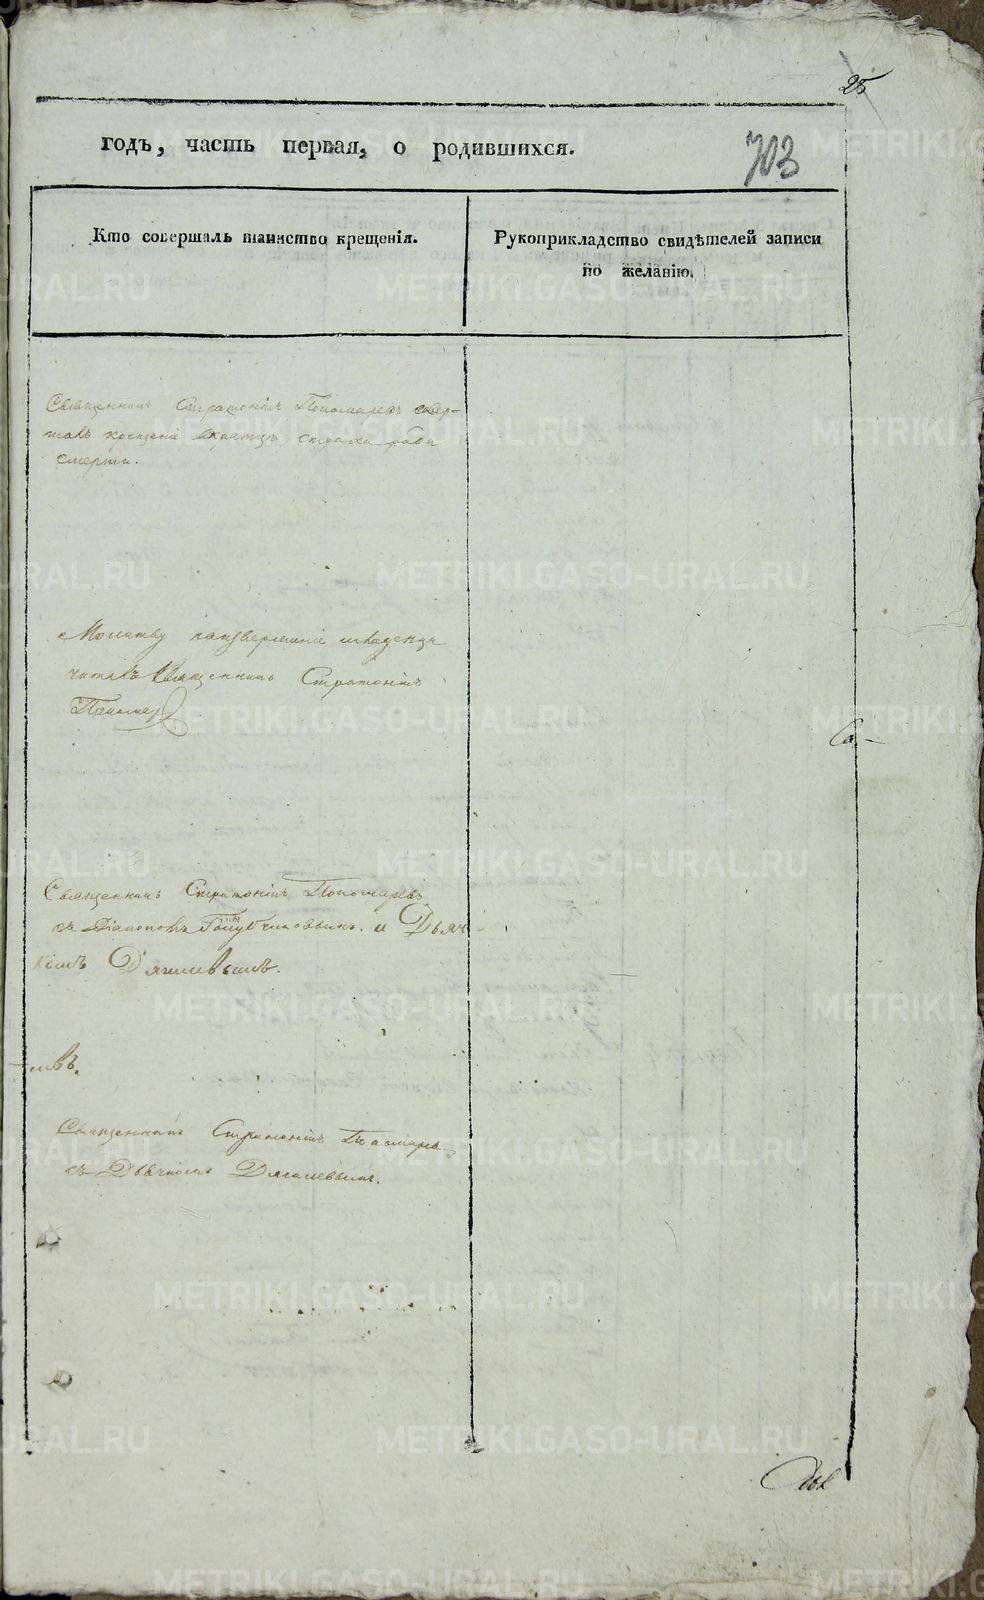 25
годъ, часть первая, о родившихся.
703
Кто совершалъ таинство крещенія.
Рукоприкладство свидѣтелей записи
по желанію.
Священникъ Стратоникъ Пономаревъ совер-
шалъ крещеніе вкратцѣ страха ради
смерти.
Молитву
читалъ Священникъ Стратоникъ
Пономар
Са-
Священникъ Стратоникъ Пономаревъ
съ Діакономъ Голубчиковымъ. и Дьяч-
комъ Дягилевымъ.
Священникъ Стратоникъ Пономаревъ
съ Дьячкомъ Дягилевымъ.
METRIKI.GASO-URAL.RU